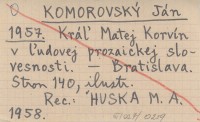 KOMOROVSKÝ Ján
1957. Kráľ Matej Korvín
v ľudovej prozaickej slo-
vesnosti. – Bratislava.
Stron 140, ilustr.
Rec.: HUSKA M. A.
1958.